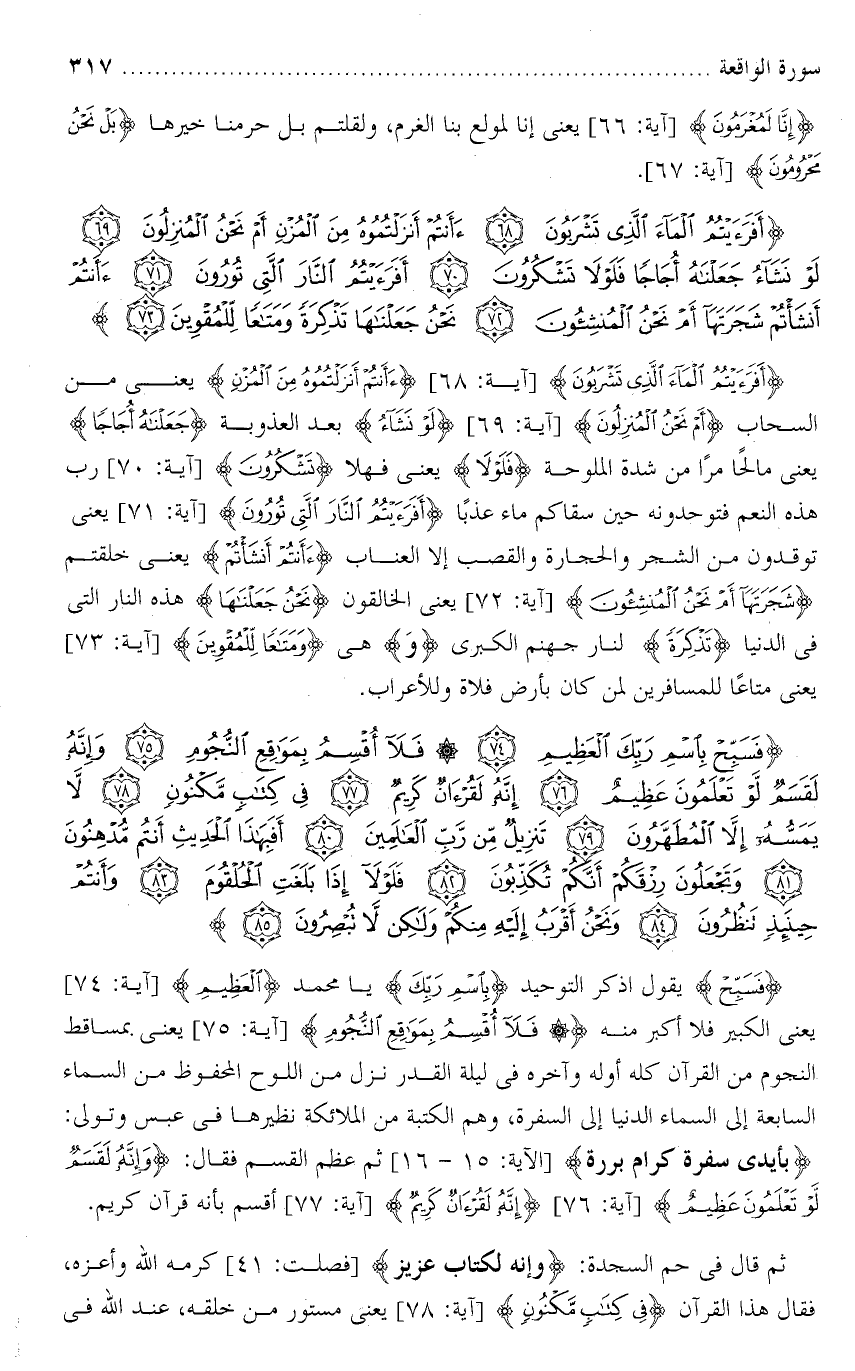 سورة الواقعة ........................................................................ ٣١٧
﴿إِنَّا لَمُغْرَمُونَ﴾ [آية: ٦٦] يعنى إنا لمولع بنا الغرم، ولقلتم بل حرمنا خيرها ﴿بَلْ نَحْنُ
مَحْرُومُونَ﴾ [آية: ٦٧].
﴿أَفَرَءَيْتُمُ ٱلْمَآءَ ٱلَّذِى تَشْرَبُونَ ٦٨ ءَأَنتُمْ أَنزَلْتُمُوهُ مِنَ ٱلْمُزْنِ أَمْ نَحْنُ ٱلْمُنزِلُونَ ٦٩
لَوْ نَشَآءُ جَعَلْنَٰهُ أُجَاجًا فَلَوْلَا تَشْكُرُونَ ٧٠ أَفَرَءَيْتُمُ ٱلنَّارَ ٱلَّتِى تُورُونَ ٧١ ءَأَنتُمْ
أَنشَأْتُمْ شَجَرَتَهَآ أَمْ نَحْنُ ٱلْمُنشِـُٔونَ ٧٢ نَحْنُ جَعَلْنَٰهَا تَذْكِرَةً وَمَتَٰعًا لِّلْمُقْوِينَ ٧٣ ﴾
﴿أَفَرَءَيْتُمُ ٱلْمَآءَ ٱلَّذِى تَشْرَبُونَ﴾ [آية: ٦٨] ﴿ءَأَنتُمْ أَنزَلْتُمُوهُ مِنَ ٱلْمُزْنِ﴾ يعنى من
السحاب ﴿أَمْ نَحْنُ ٱلْمُنزِلُونَ﴾ [آية: ٦٩] ﴿لَوْ نَشَآءُ﴾ بعد العذوبة ﴿جَعَلْنَٰهُ أُجَاجًا﴾
يعنى مالحًا مرًا من شدة الملوحة ﴿فَلَوْلَا﴾ يعنى فهلا ﴿تَشْكُرُونَ﴾ [آية: ٧٠] رب
هذه النعم فتوحدونه حين سقاكم ماء عذبًا ﴿أَفَرَءَيْتُمُ ٱلنَّارَ ٱلَّتِى تُورُونَ﴾ [آية: ٧١] يعنى
توقدون من الشجر والحجارة والقصب إلا العناب ﴿ءَأَنتُمْ أَنشَأْتُمْ﴾ يعنى خلقتم
﴿شَجَرَتَهَآ أَمْ نَحْنُ ٱلْمُنشِـُٔونَ﴾ [آية: ٧٢] يعنى الخالقون ﴿نَحْنُ جَعَلْنَٰهَا﴾ هذه النار التى
فى الدنيا ﴿تَذْكِرَةً﴾ لنار جهنم الكبرى ﴿وَ﴾ هى ﴿وَمَتَٰعًا لِّلْمُقْوِينَ﴾ [آية: ٧٣]
يعنى متاعًا للمسافرين لمن كان بأرض فلاة وللأعراب.
﴿فَسَبِّحْ بِٱسْمِ رَبِّكَ ٱلْعَظِيمِ ٧٤ ۞ فَلَآ أُقْسِمُ بِمَوَٰقِعِ ٱلنُّجُومِ ٧٥ وَإِنَّهُۥ
لَقَسَمٌ لَّوْ تَعْلَمُونَ عَظِيمٌ ٧٦ إِنَّهُۥ لَقُرْءَانٌ كَرِيمٌ ٧٧ فِى كِتَٰبٍ مَّكْنُونٍ ٧٨ لَّا
يَمَسُّهُۥٓ إِلَّا ٱلْمُطَهَّرُونَ ٧٩ تَنزِيلٌ مِّن رَّبِّ ٱلْعَٰلَمِينَ ٨٠ أَفَبِهَٰذَا ٱلْحَدِيثِ أَنتُم مُّدْهِنُونَ
٨١ وَتَجْعَلُونَ رِزْقَكُمْ أَنَّكُمْ تُكَذِّبُونَ ٨٢ فَلَوْلَآ إِذَا بَلَغَتِ ٱلْحُلْقُومَ ٨٣ وَأَنتُمْ
حِينَئِذٍ تَنظُرُونَ ٨٤ وَنَحْنُ أَقْرَبُ إِلَيْهِ مِنكُمْ وَلَٰكِن لَّا تُبْصِرُونَ ٨٥ ﴾
﴿فَسَبِّحْ﴾ يقول اذكر التوحيد ﴿بِٱسْمِ رَبِّكَ﴾ يا محمد ﴿ٱلْعَظِيمِ﴾ [آية: ٧٤]
يعنى الكبير فلا أكبر منه ﴿۞ فَلَآ أُقْسِمُ بِمَوَٰقِعِ ٱلنُّجُومِ﴾ [آية: ٧٥] يعنى بمساقط
النجوم من القرآن كله أوله وآخره فى ليلة القدر نزل من اللوح المحفوظ من السماء
السابعة إلى السماء الدنيا إلى السفرة، وهم الكتبة من الملائكة نظيرها فى عبس وتولى:
﴿بأيدى سفرة كرام بررة﴾ [الآية: ١٥ - ١٦] ثم عظم القسم فقال: ﴿وَإِنَّهُۥ لَقَسَمٌ
لَّوْ تَعْلَمُونَ عَظِيمٌ﴾ [آية: ٧٦] ﴿إِنَّهُۥ لَقُرْءَانٌ كَرِيمٌ﴾ [آية: ٧٧] أقسم بأنه قرآن كريم.
ثم قال فى حم السجدة: ﴿وإنه لكتاب عزيز﴾ [فصلت: ٤١] كرمه الله وأعزه،
فقال هذا القرآن ﴿فِى كِتَٰبٍ مَّكْنُونٍ﴾ [آية: ٧٨] يعنى مستور من خلقه، عند الله فى